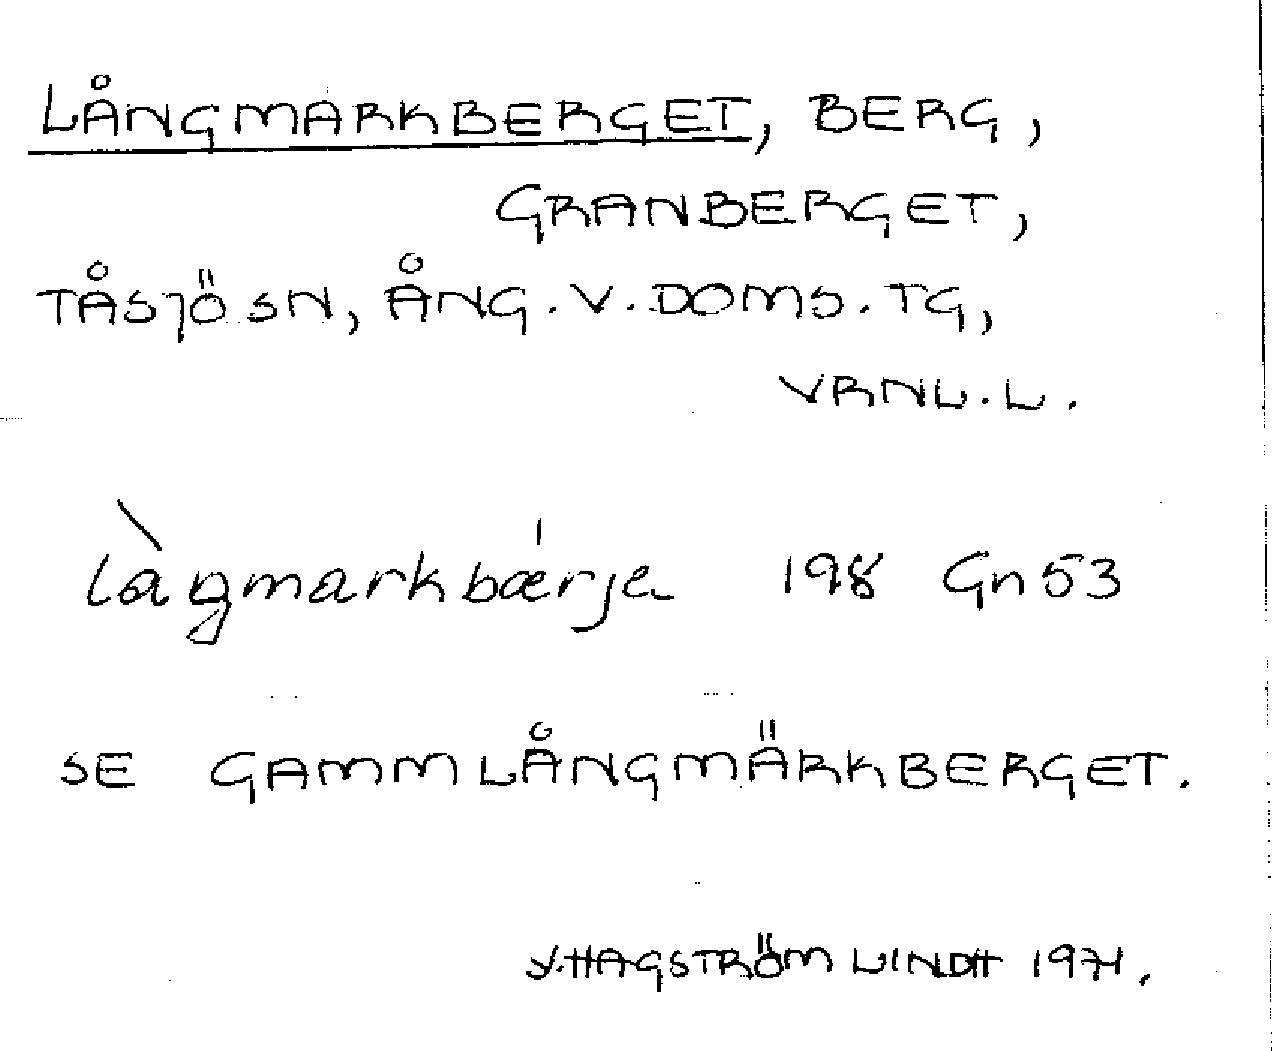 LÅNGMARKBERGET, BERG,
GRANBERGET,
TÅSJÖ SN, ÅNG. V. DOMS. TG,
VRNL. L.
làŋmarkbærje 198 Gn 53
SE GAMMLÅNGMÄRKBERGET.
Y. HAGSTRÖM LINDH 1971.